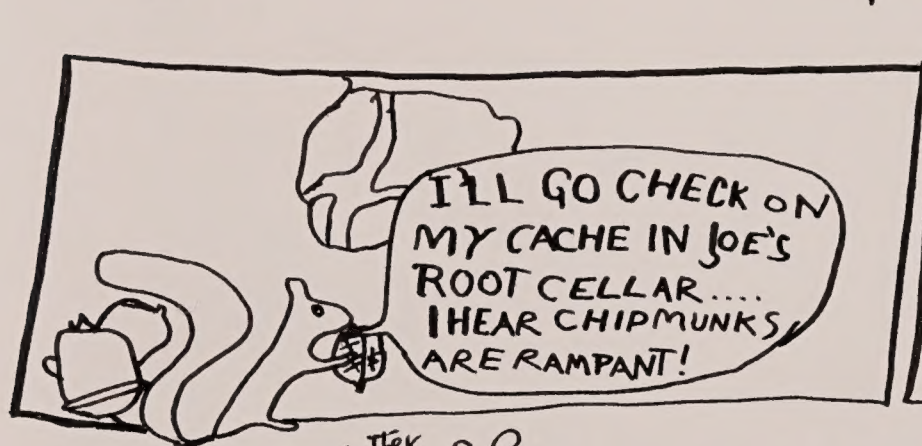 I'LL GO CHECK ON
MY CACHE IN JOE'S
ROOT CELLAR....
I HEAR CHIPMUNKS
ARE RAMPANT!